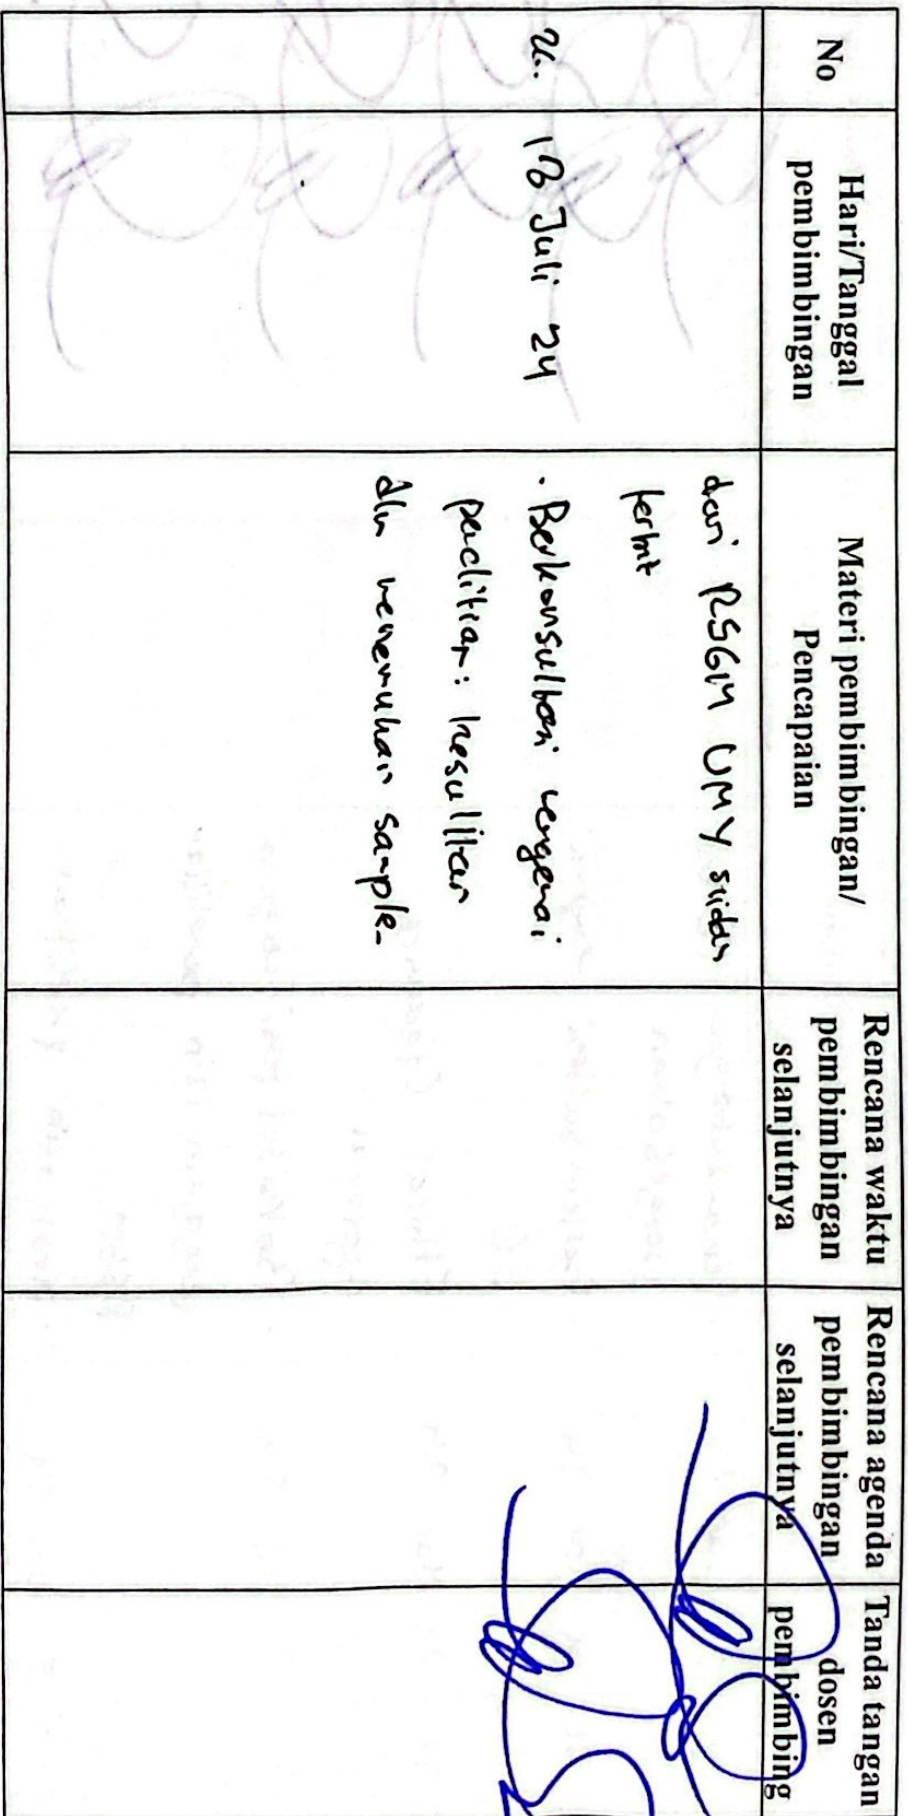 No
Hari/Tanggal
pembimbingan
Materi pembimbingan/
Pencapaian
Rencana waktu
pembimbingan
selanjutnya
Rencana agenda
pembimbingan
selanjutnya
Tanda tangan
dosen
pembimbing
dari RSGM UMY sudah
terbit
Juli 24
. Berkonsultasi mengenai
penelitian: kesulitan
dlm menemukan sample.